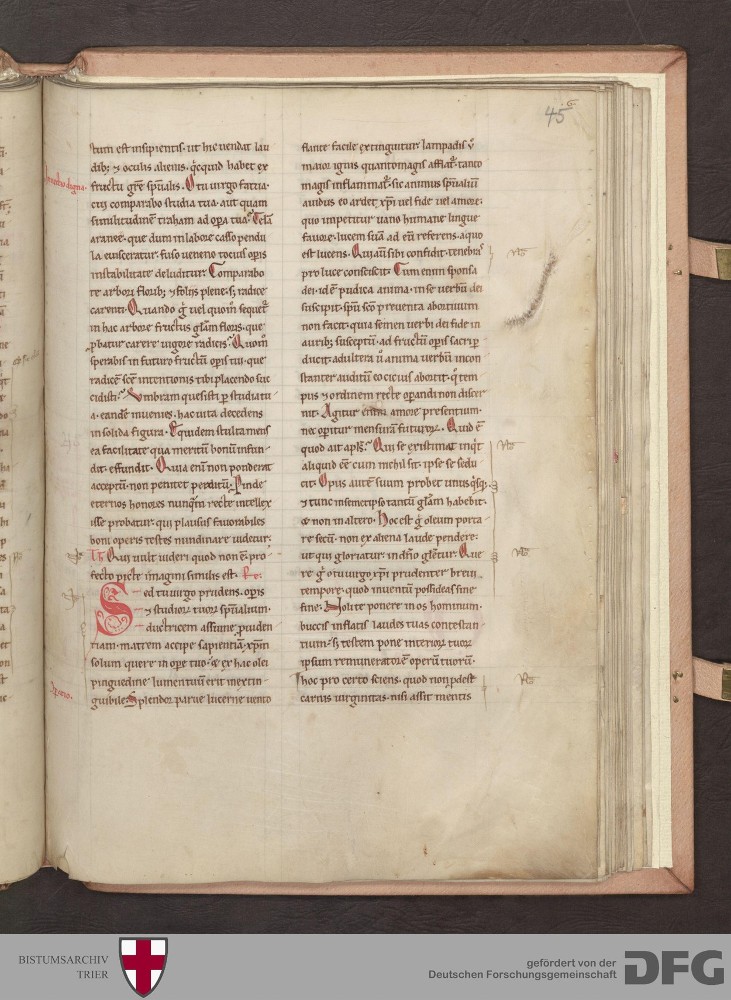 45
tum est insipientis. ut hic uendat lau
dib; ⁊ oculis alienis. q̇cquid habet ex
fructu gr̄e sp̄ualis. O tu uirgo fatua.
cui comparabo studia tua. aut quam
similitudinē traham ad oꝑa tua. Telā
araneę. que dum in labore casso pendu
la euisceratur. fuso ueneno tocius oꝑis
instabilitate deluditur. Comparabo
te arbori florib; ⁊ foliis plene. s; radice
carenti. Quando g̊ uel quom̊ sequet̄
in hac arbore fructus gl̄am floris. que
ꝓbatur carere uigore radicis. Quom̊
sperabis in futuro fructū oꝑis tui. que
radicē sc̄e intentionis tibi placendo suc
cidisti. Vmbram quesisti ꝑ studia tu
a. eandē inuenies. hac uita decedens
in solida figura. Equidem stulta mens
ea facilitate qua meritū bonū infun
dit. effundit. Quia eni non ponderat
acceptū. non penitet perditū. Vnde
eternos honores nunq̄m recte intellex
isse probatur. qui plausus fauorabiles
boni operis testes nundinare uidetur.
Qui uult uideri quod non ē. pro
fecto picte imagini similis est.
Sed tu uirgo prudens. oꝑis
⁊ studioꝝ tuoꝝ sp̄ualium.
ductricem assume pruden
tiam. matrem accipe sapientiā. xp̄m
solum quere in oꝑe tuo. ⁊ ex hac olei
pinguedine lumen tuū erit inextin
guibile. Splendor parue lucerne uento
flante facile extinguitur. lampadis ů
maior ignis quanto magis afflat̄. tanto
magis inflammat̄. sic animus sp̄ualiū
auidus eo ardet xp̄i uel fide uel amore.
quo impetitur uano humane lingue
fauore. lucem suā ad eū referens. a quo
est lucens. Qui aūt sibi confidit. tenebras
pro luce consciscit. Cum enim sponsa
dei. id ē pudica anima. in se uerbū dei
suscipit. sp̄u sc̄o preuenta abortiuum
non facit. quia semen uerbi dei fide in
aurib; susceptū. ad fructū oꝑis sacri ꝑ
ducit. adultera ů anima uerbū incon
stanter auditū eo cicius abortit. q̇ tem
pus ⁊ ordinem recte oꝑandi non discer
nit. Agitur enim amore presentium.
nec oꝑitur mensurā futuroꝝ. Quid ē
quod ait apl̄s. Qui se existimat inq̇t
aliquid ee cum nichil sit. ipse se sedu
cit. Opus autē suum probet unusq̇sq;
⁊ tunc in semetipso tantū gl̄am habebit.
⁊ non in altero. Hoc est g̊ oleum porta
re secū. non ex aliena laude pendere.
ut qui gloriatur. in dn̄o glet̄ur. Que
re g̊ o tu uirgo xp̄i prudenter breui
tempore. quod inuentū possideas sine
fine. Nolite ponere in os hominum.
buccis inflatis laudes tuas contestan
tium. s; testem pone interioꝝ tuoꝝ
ipsum remuneratorē operū tuorū.
hoc pro certo sciens. quod non ꝓdest
carnis uirginitas. nisi assit mentis
BISTUMSARCHIV
TRIER
gefördert von der
Deutschen Forschungsgemeinschaft
DFG